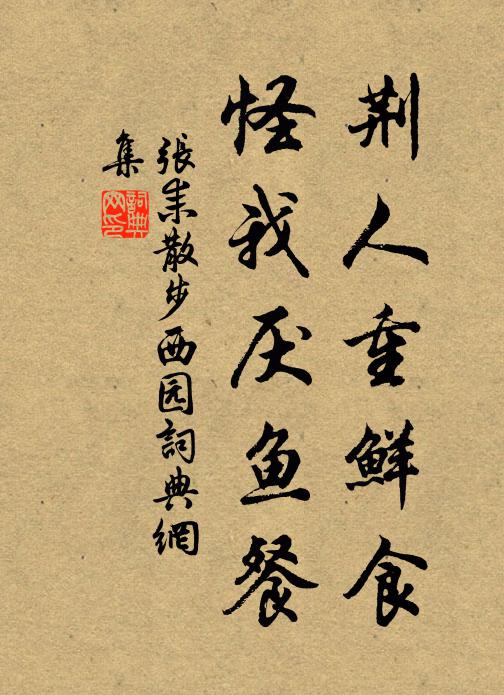 荆人重鲜食
怪我厌鱼餐
張耒散步西园詞典網
集
詞典網印